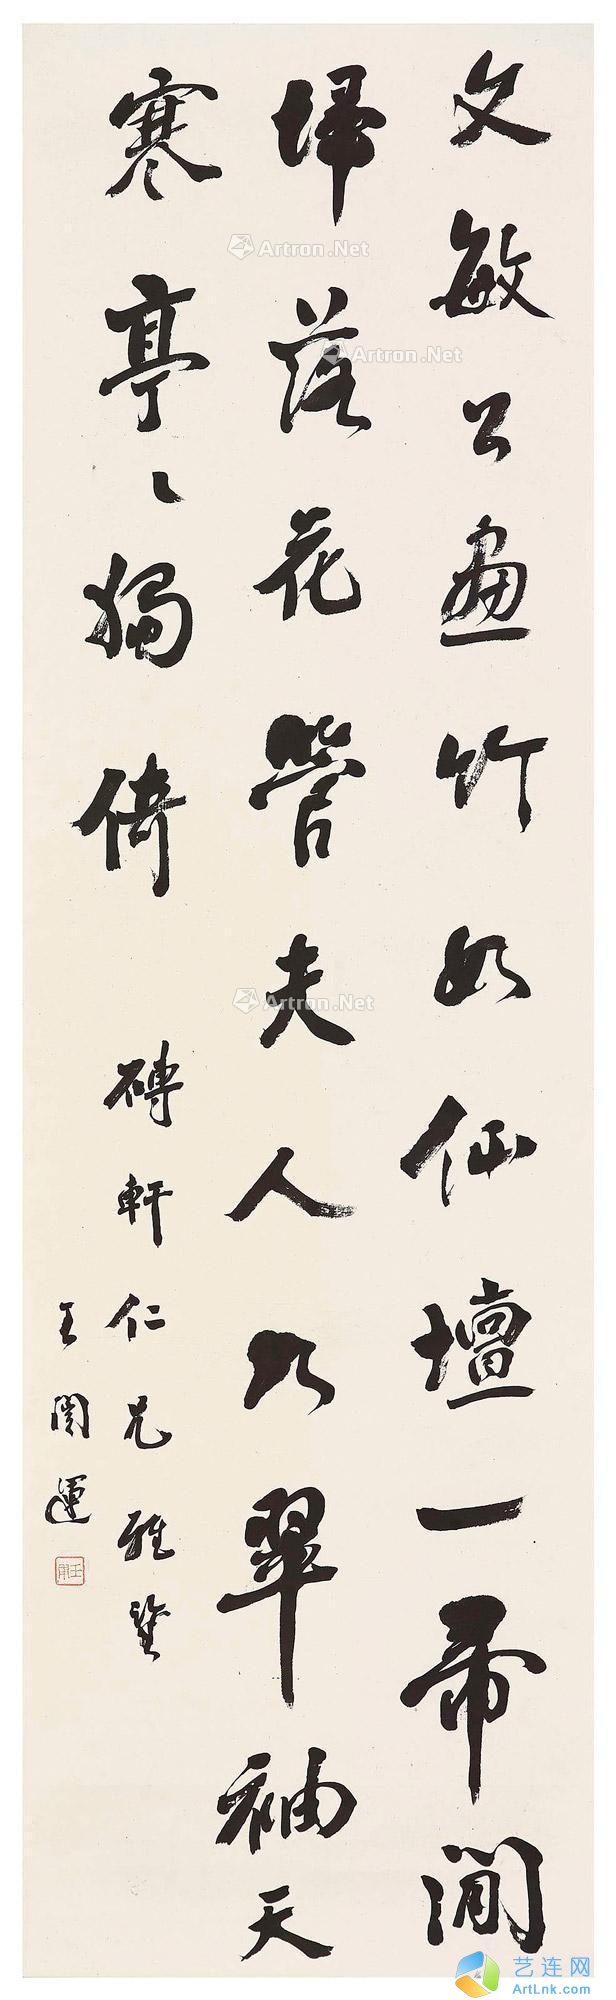 文敏公畫竹如仙壇一帚閒
埽落花管夫人如翠袖天
寒亭〻獨倚
磚軒仁兄雅鑒
王闓運
Artron.Net
Artron.Net
Artron.Net
艺连网
ArtLnk.com